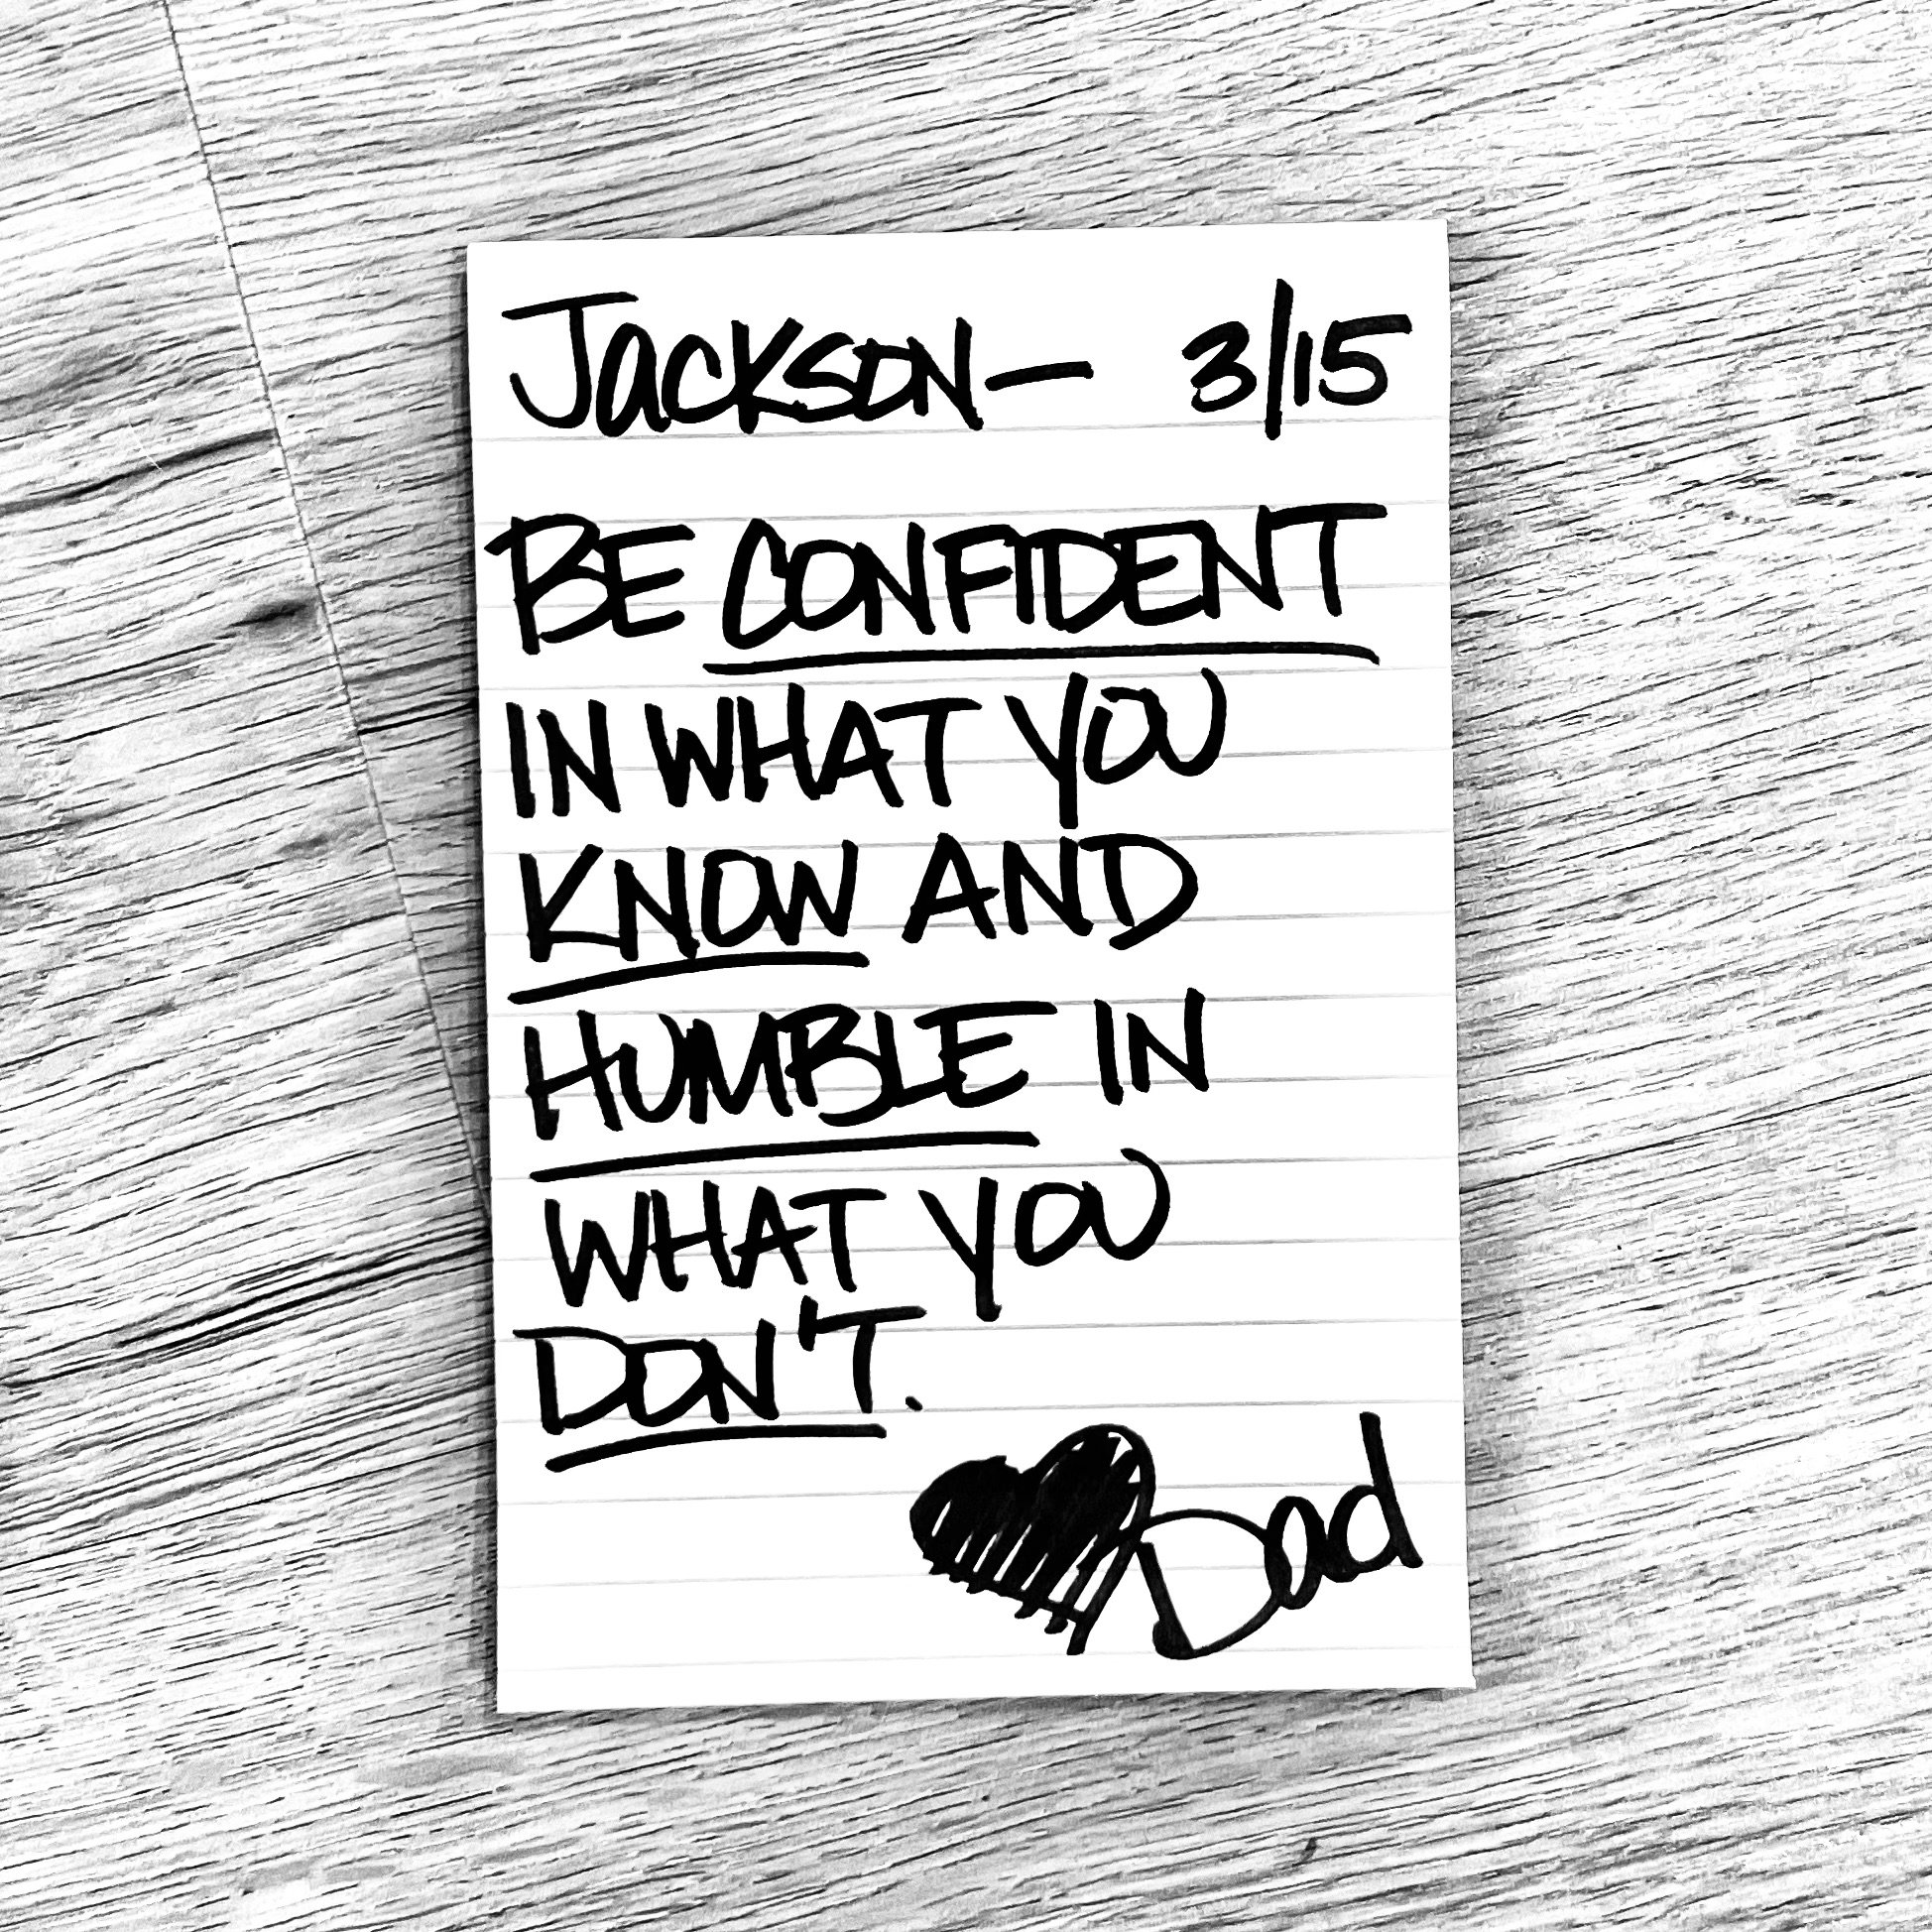 Jackson— 3/15
BE CONFIDENT
IN WHAT YOU
KNOW AND
HUMBLE IN
WHAT YOU
DON'T.
Dad